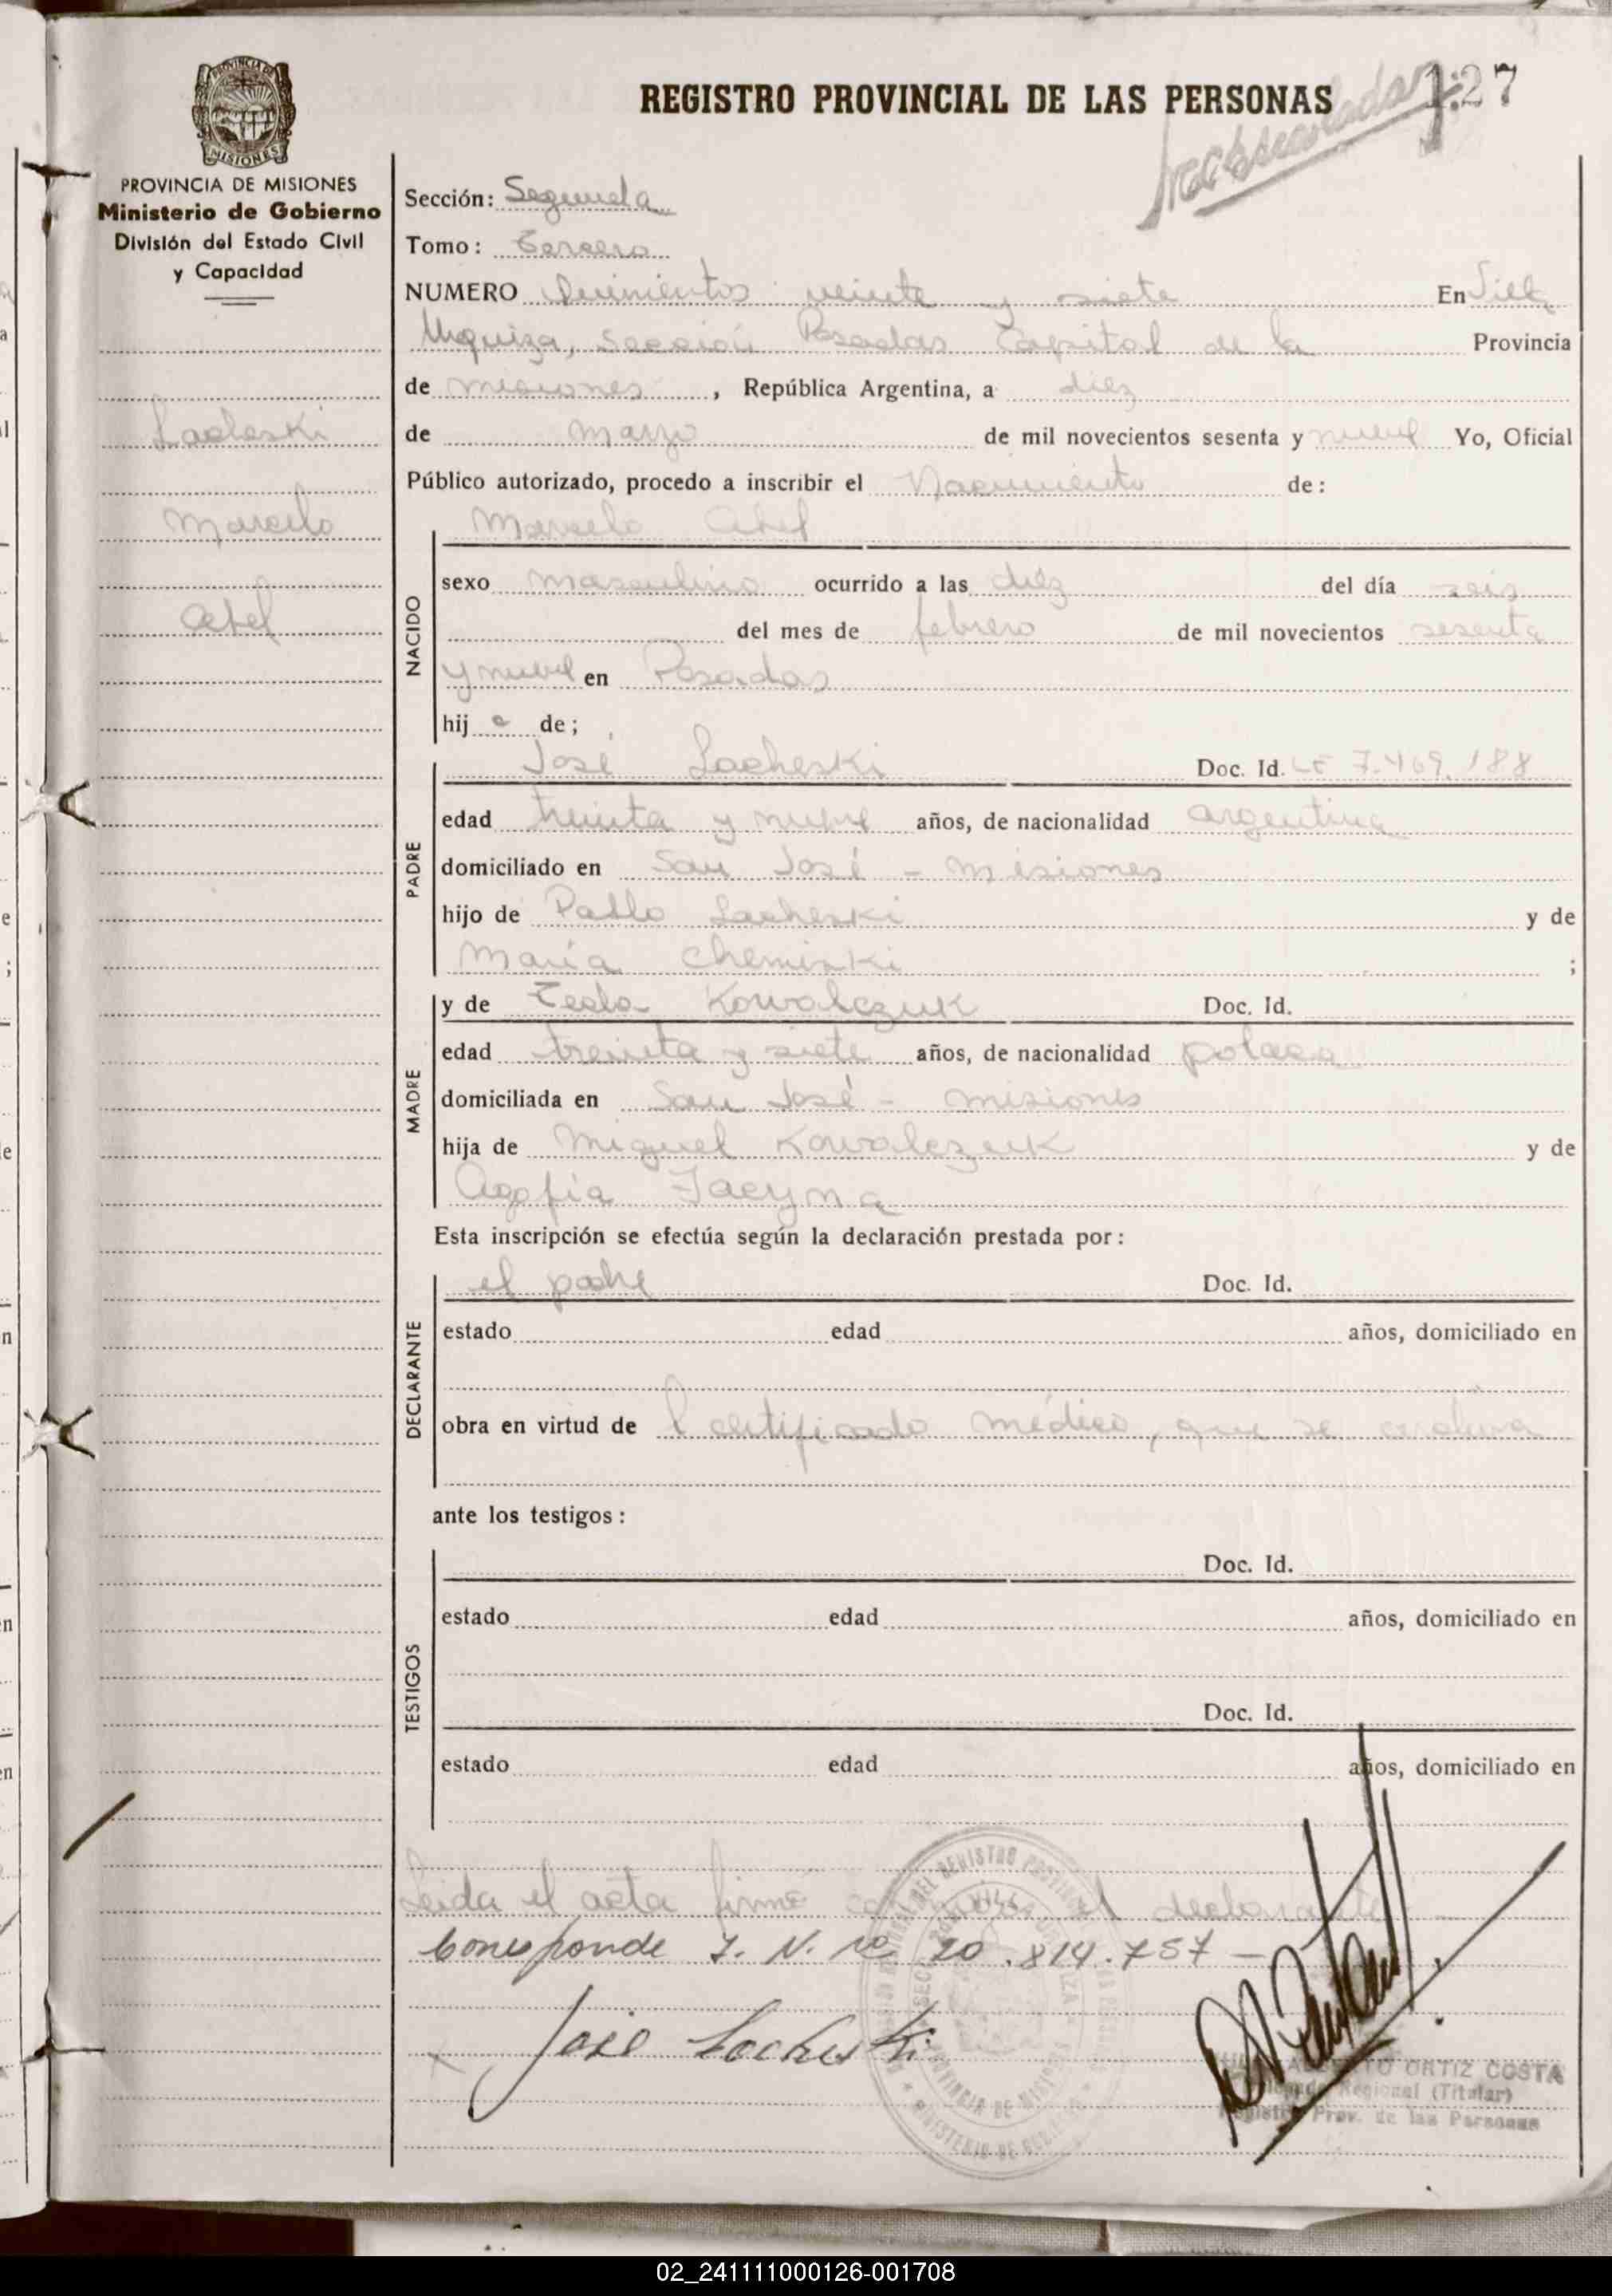 PROVINCIA DE
MISIONES
PROVINCIA DE MISIONES
Ministerio de Gobierno
División del Estado Civil
y Capacidad
Lacheski
Marcelo
Abel
REGISTRO PROVINCIAL DE LAS PERSONAS
127
Sección: Segunda
Tomo: Tercero
NUMERO Quinientos veinte y siete En Villa
Urquiza, Sección Posadas Capital de la Provincia
de Misiones, República Argentina, a diez
de marzo de mil novecientos sesenta y nueve Yo, Oficial
Público autorizado, procedo a inscribir el Nacimiento de:
Marcelo Abel
NACIDO
sexo masculino ocurrido a las diez del día seis
del mes de febrero de mil novecientos sesenta
y nueve en Posadas
hij o de;
PADRE
José Lacheski Doc. Id. LE 7.469.188
edad treinta y nueve años, de nacionalidad argentina
domiciliado en San José - Misiones
hijo de Pablo Lacheski y de
María Cheminski ;
MADRE
y de Tecla Kowalczuk Doc. Id.
edad treinta y siete años, de nacionalidad polaca
domiciliada en San José - Misiones
hija de Miguel Kowalczuk y de
Agafia Jaeyna
Esta inscripción se efectúa según la declaración prestada por:
DECLARANTE
el padre Doc. Id.
estado edad años, domiciliado en
obra en virtud de l certificado médico, que se archiva
ante los testigos:
TESTIGOS
Doc. Id.
estado edad años, domiciliado en
Doc. Id.
estado edad años, domiciliado en
Leida el acta firmó conmigo el declarante
Corresponde I. N. no 20.814.757 —
José Lacheski
ORTIZ COSTA
Regional (Titular)
Registro Prov. de las Personas
02_241111000126-001708